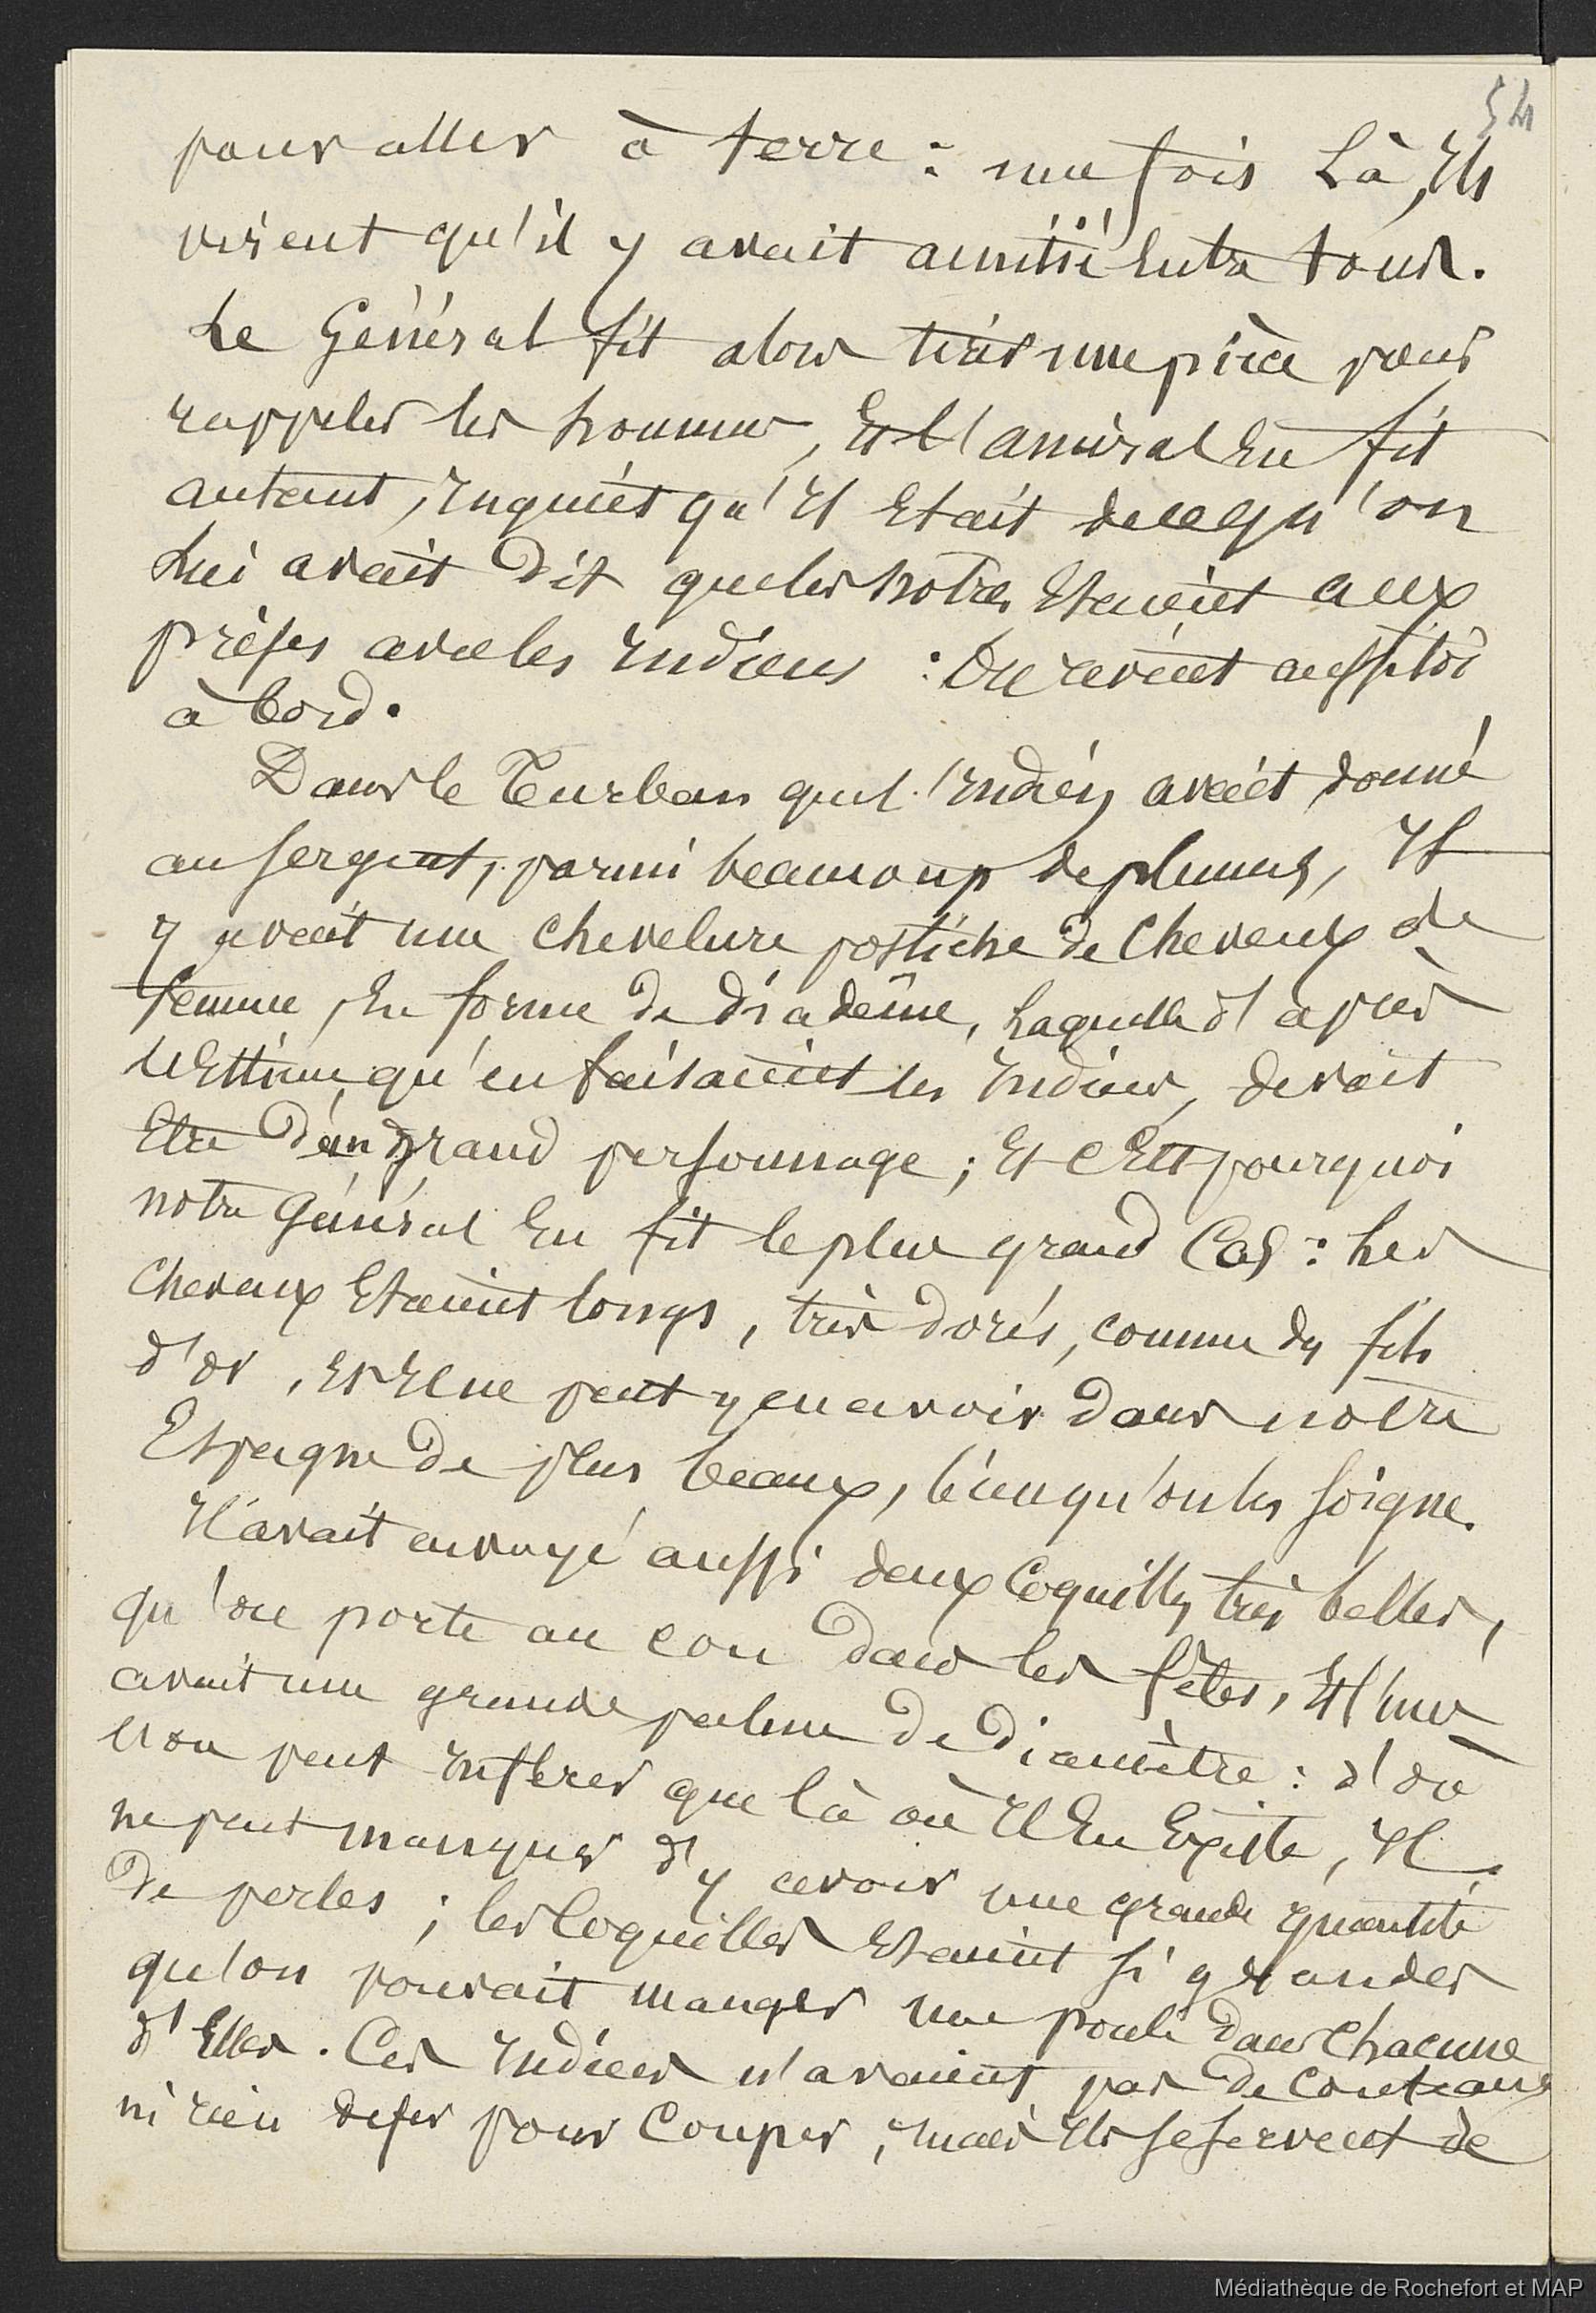 54
pour aller à terre : une fois Là, Ils
virent qu'il y avait amitié Entre tous.
Le Général fit alors tirer une pièce pour
rappeler les hommes, Et l'amiral En fit
autant, Inquiet qu'Il Etait de ce qu'on
Lui avait Dit que les nôtres Etaient aux
prises avec les Indiens : On revint aussitôt
à bord.
Dans le Turban que l'Indien avait donné
au sergent, parmi beaucoup de plumes, Il
y avait une chevelure postiche de Cheveux de
femme, En forme de Diadême, Laquelle d'après
l'Estime qu'en faisaient les Indiens, devait
Etre D'un grand personnage ; Et c'Est pourquoi
notre Général En fit le plus grand Cas : Les
Cheveux Etaient longs, très Dorés, comme des fils
d'or, Et Il ne peut y en avoir Dans notre
Espagne De plus beaux, bien qu'on les soigne.
Il avait envoyé aussi deux Coquilles très belles,
qu'on porte au cou Dans les fêtes, Et l'une
avait une grande palme De Diamètre : d'où
l'on peut Inférer que là où Il En Existe, Il
ne peut manquer d'y avoir une grande quantité
De perles ; les Coquilles Etaient si grandes
qu'on pouvait manger une poule Dans Chacune
d'Elles. Ces Indiens n'avaient pas De Couteaux
ni rien de fer pour Couper, mais Ils se servent de
Médiathèque de Rochefort et MAP